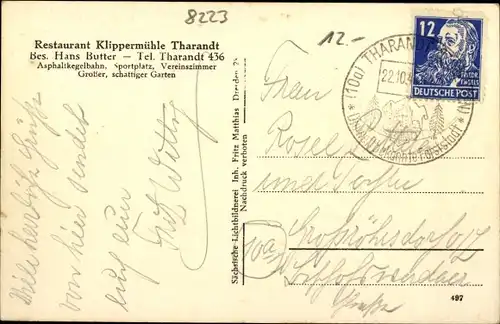 8223
12.-
Restaurant Klippermühle Tharandt
Bes. Hans Butter — Tel. Tharandt 436
Asphaltkegelbahn, Sportplatz, Vereinszimmer
Großer, schattiger Garten
Viele herzliche Grüße
von hier sendet
Euch
Fritz
Sächsische Lichtbildnerei Inh. Fritz Matthias Dresden
Nachdruck verboten
12
DEUTSCHE POST
(10a) THARANDT
22.10.
Frau
und Tochter
(10a)
Großröhrsdorf
Bischofswerdaer
Straße
497